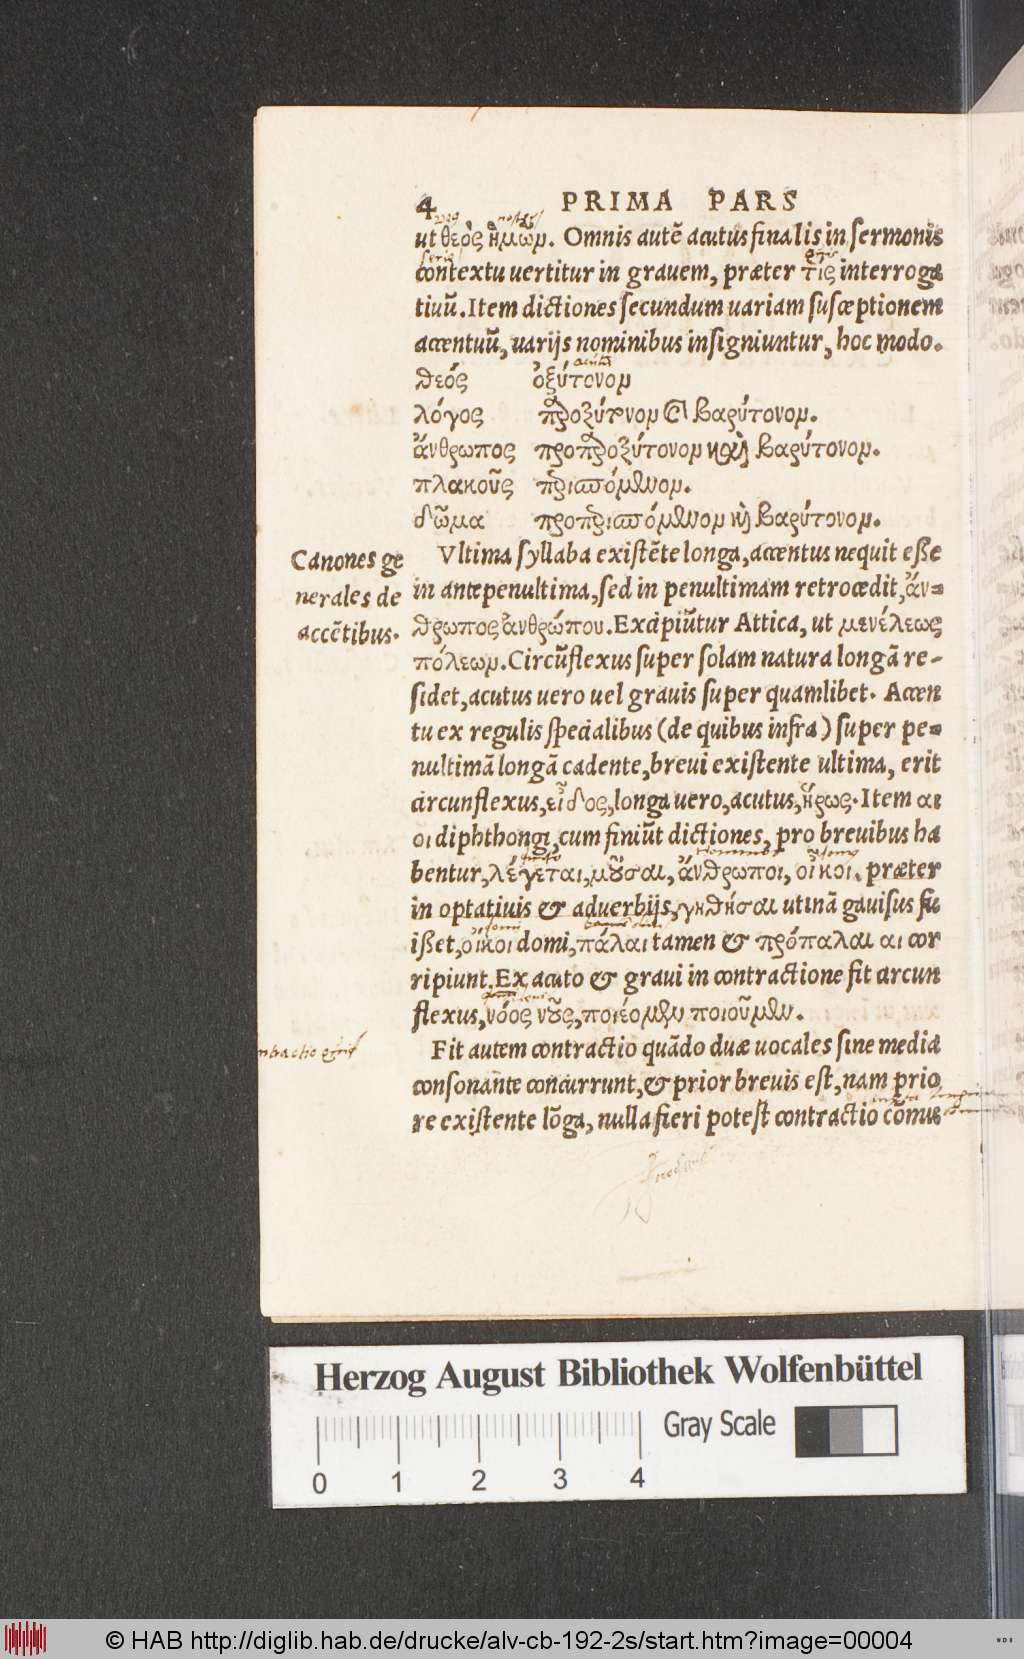 4 PRIMA PARS
ut θεὸς ἡμῶν. Omnis autē acutus finalis in sermonis
contextu uertitur in grauem, præter τίς interroga
tiuū. Item dictiones secundum uariam susceptionem
accentuū, uarijs nominibus insigniuntur, hoc modo.
θεός ὀξύτονον
λόγος παροξύτονον & βαρύτονον.
ἄνθρωπος προπαροξύτονον καὶ βαρύτονον.
πλακοῦς περισπώμενον.
δῶμα προπερισπώμενον καὶ βαρύτονον.
Canones ge
nerales de
accētibus.
Vltima syllaba existēte longa, accentus nequit esse
in antepenultima, sed in penultimam retrocedit, ἄν=
θρωπος ἀνθρώπου. Excipiūtur Attica, ut μενέλεως
πόλεων. Circūflexus super solam natura longā re-
sidet, acutus uero uel grauis super quamlibet. Accen
tu ex regulis specialibus (de quibus infra) super pe=
nultimā longā cadente, breui existente ultima, erit
circunflexus, εἶδος, longa uero, acutus, ἥρως. Item αι
οι diphthongi, cum finiūt dictiones, pro breuibus ha
bentur, λέγεται, μοῦσαι, ἄνθρωποι, οἶκοι. præter
in optatiuis & aduerbijs, γηθήσαι utinā gauisus fu
isset, οἴκοι domi, πάλαι tamen & πρόπαλαι αι cor
ripiunt. Ex acuto & graui in contractione fit circun
flexus, νόος νοῦς, ποιέομεν ποιοῦμεν.
Fit autem contractio quādo duæ uocales sine media
consonante concurrunt, & prior breuis est, nam prio
re existente lōga, nulla fieri potest contractio cōmus
Herzog August Bibliothek Wolfenbüttel
Gray Scale
0 1 2 3 4
© HAB http://diglib.hab.de/drucke/alv-cb-192-2s/start.htm?image=00004